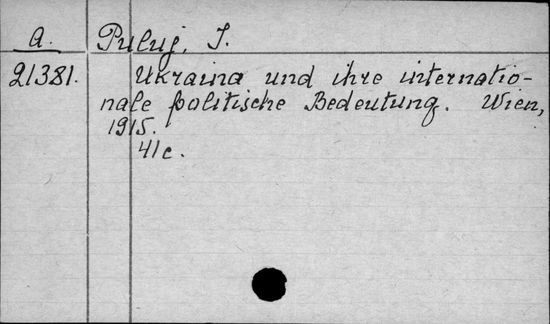 A. Puluj, I.
21381. Ukraina und ihre internatio-
nale politische Bedeutung. Wien,
1915.
41c.